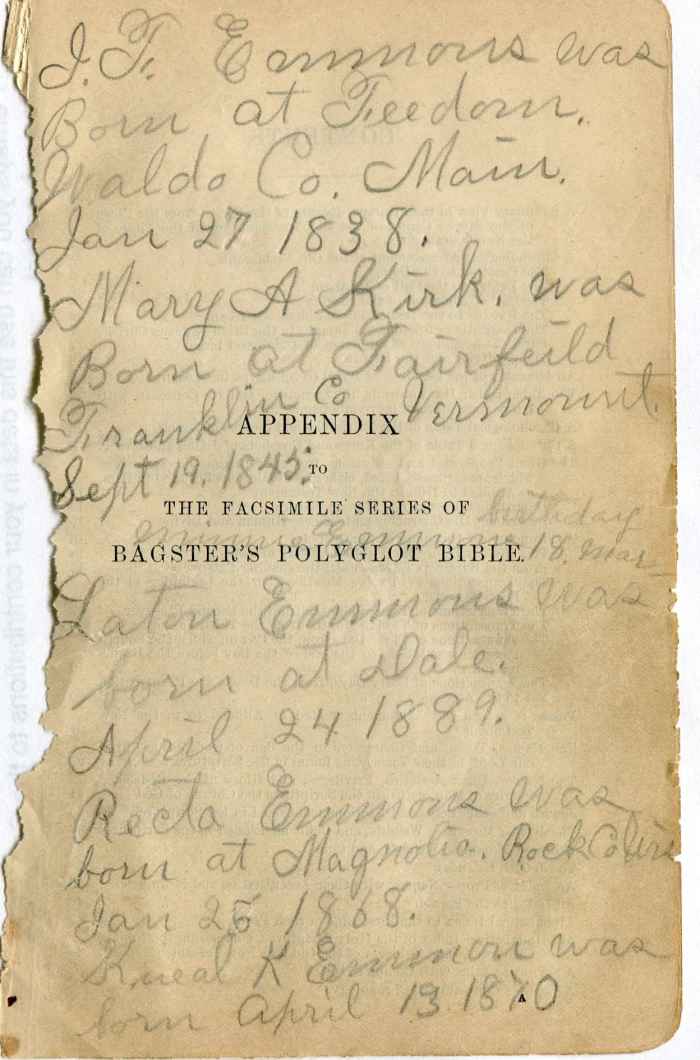 J. F. Emmons was
Born at Feedom.
Waldo Co. Main.
Jan 27 1838.
Mary A Kirk. was
Born at Fairfeild
Franklin Co Vermount.
APPENDIX
Sept 19. 1845.
TO
THE FACSIMILE SERIES OF
birthday
Minnie Emmons 18. Mar
BAGSTER'S POLYGLOT BIBLE.
Laton Emmons was
born at Dale.
April 24 1889.
Recta Emmons was
born at Magnolia. Rock Co Wis
Jan 26 1868.
Kneal K Emmon was
born April 13 1870
A